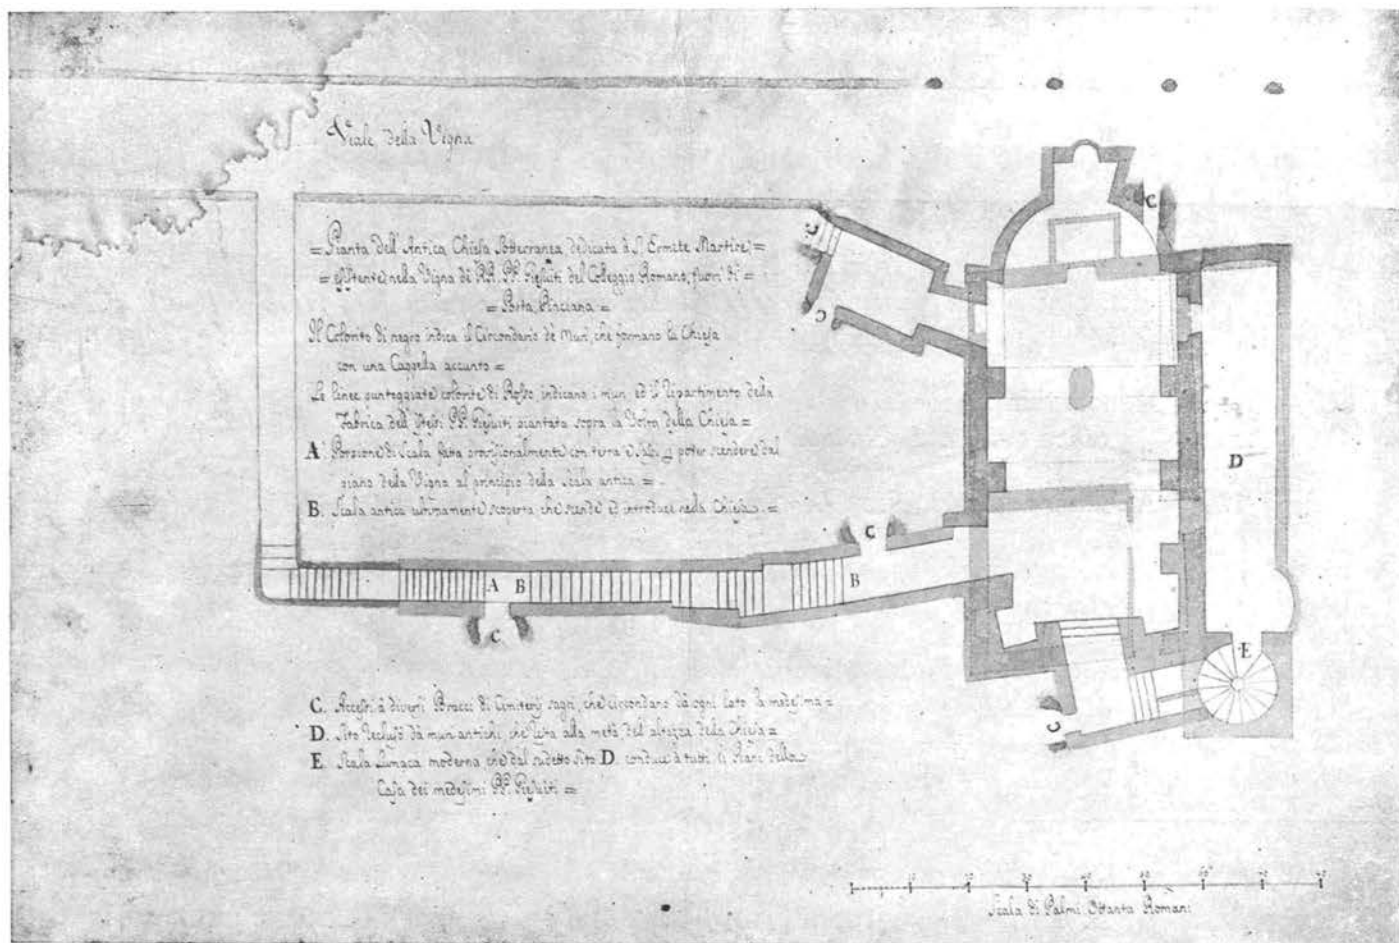 Viale della Vigna
= Pianta dell'Antica Chiesa Sotterranea dedicata à S. Ermete Martire, =
= esistente nella Vigna de RR. PP. Giesuiti del Colleggio Romano, fuori di =
= Porta Pinciana =
Il Colorito di negro indica il Circondario de Muri, che formano la Chiesa
con una Cappella accanto =
Le linee punteggiate colorite di Rosso, indicano i muri, ed il Ripartimento della
Fabrica dell' stessi PP. Giesuiti piantata sopra la Volta della Chiesa =
A. Porzione di scala fatta provisionalmente con terra e sassi p poter scendere dal
piano della Vigna al principio della scala antica =
B. Scala antica ultimamente scoperta che scende ed introduce nella Chiesa. =
C. Accessi à diversi Bracci di Cimiterj sagri, che circondano da ogni lato la medesima =
D. Sito recluso da muri antichi che alla metà dell'altezza della Chiesa =
E. Scala Lumaca moderna che dal sudetto sito D. conduce à tutti li Piani della
Casa dei medesimi PP. Giesuiti =
C
C
C
D
C
A
B
B
C
E
C
Scala di Palmi Ottanta Romani